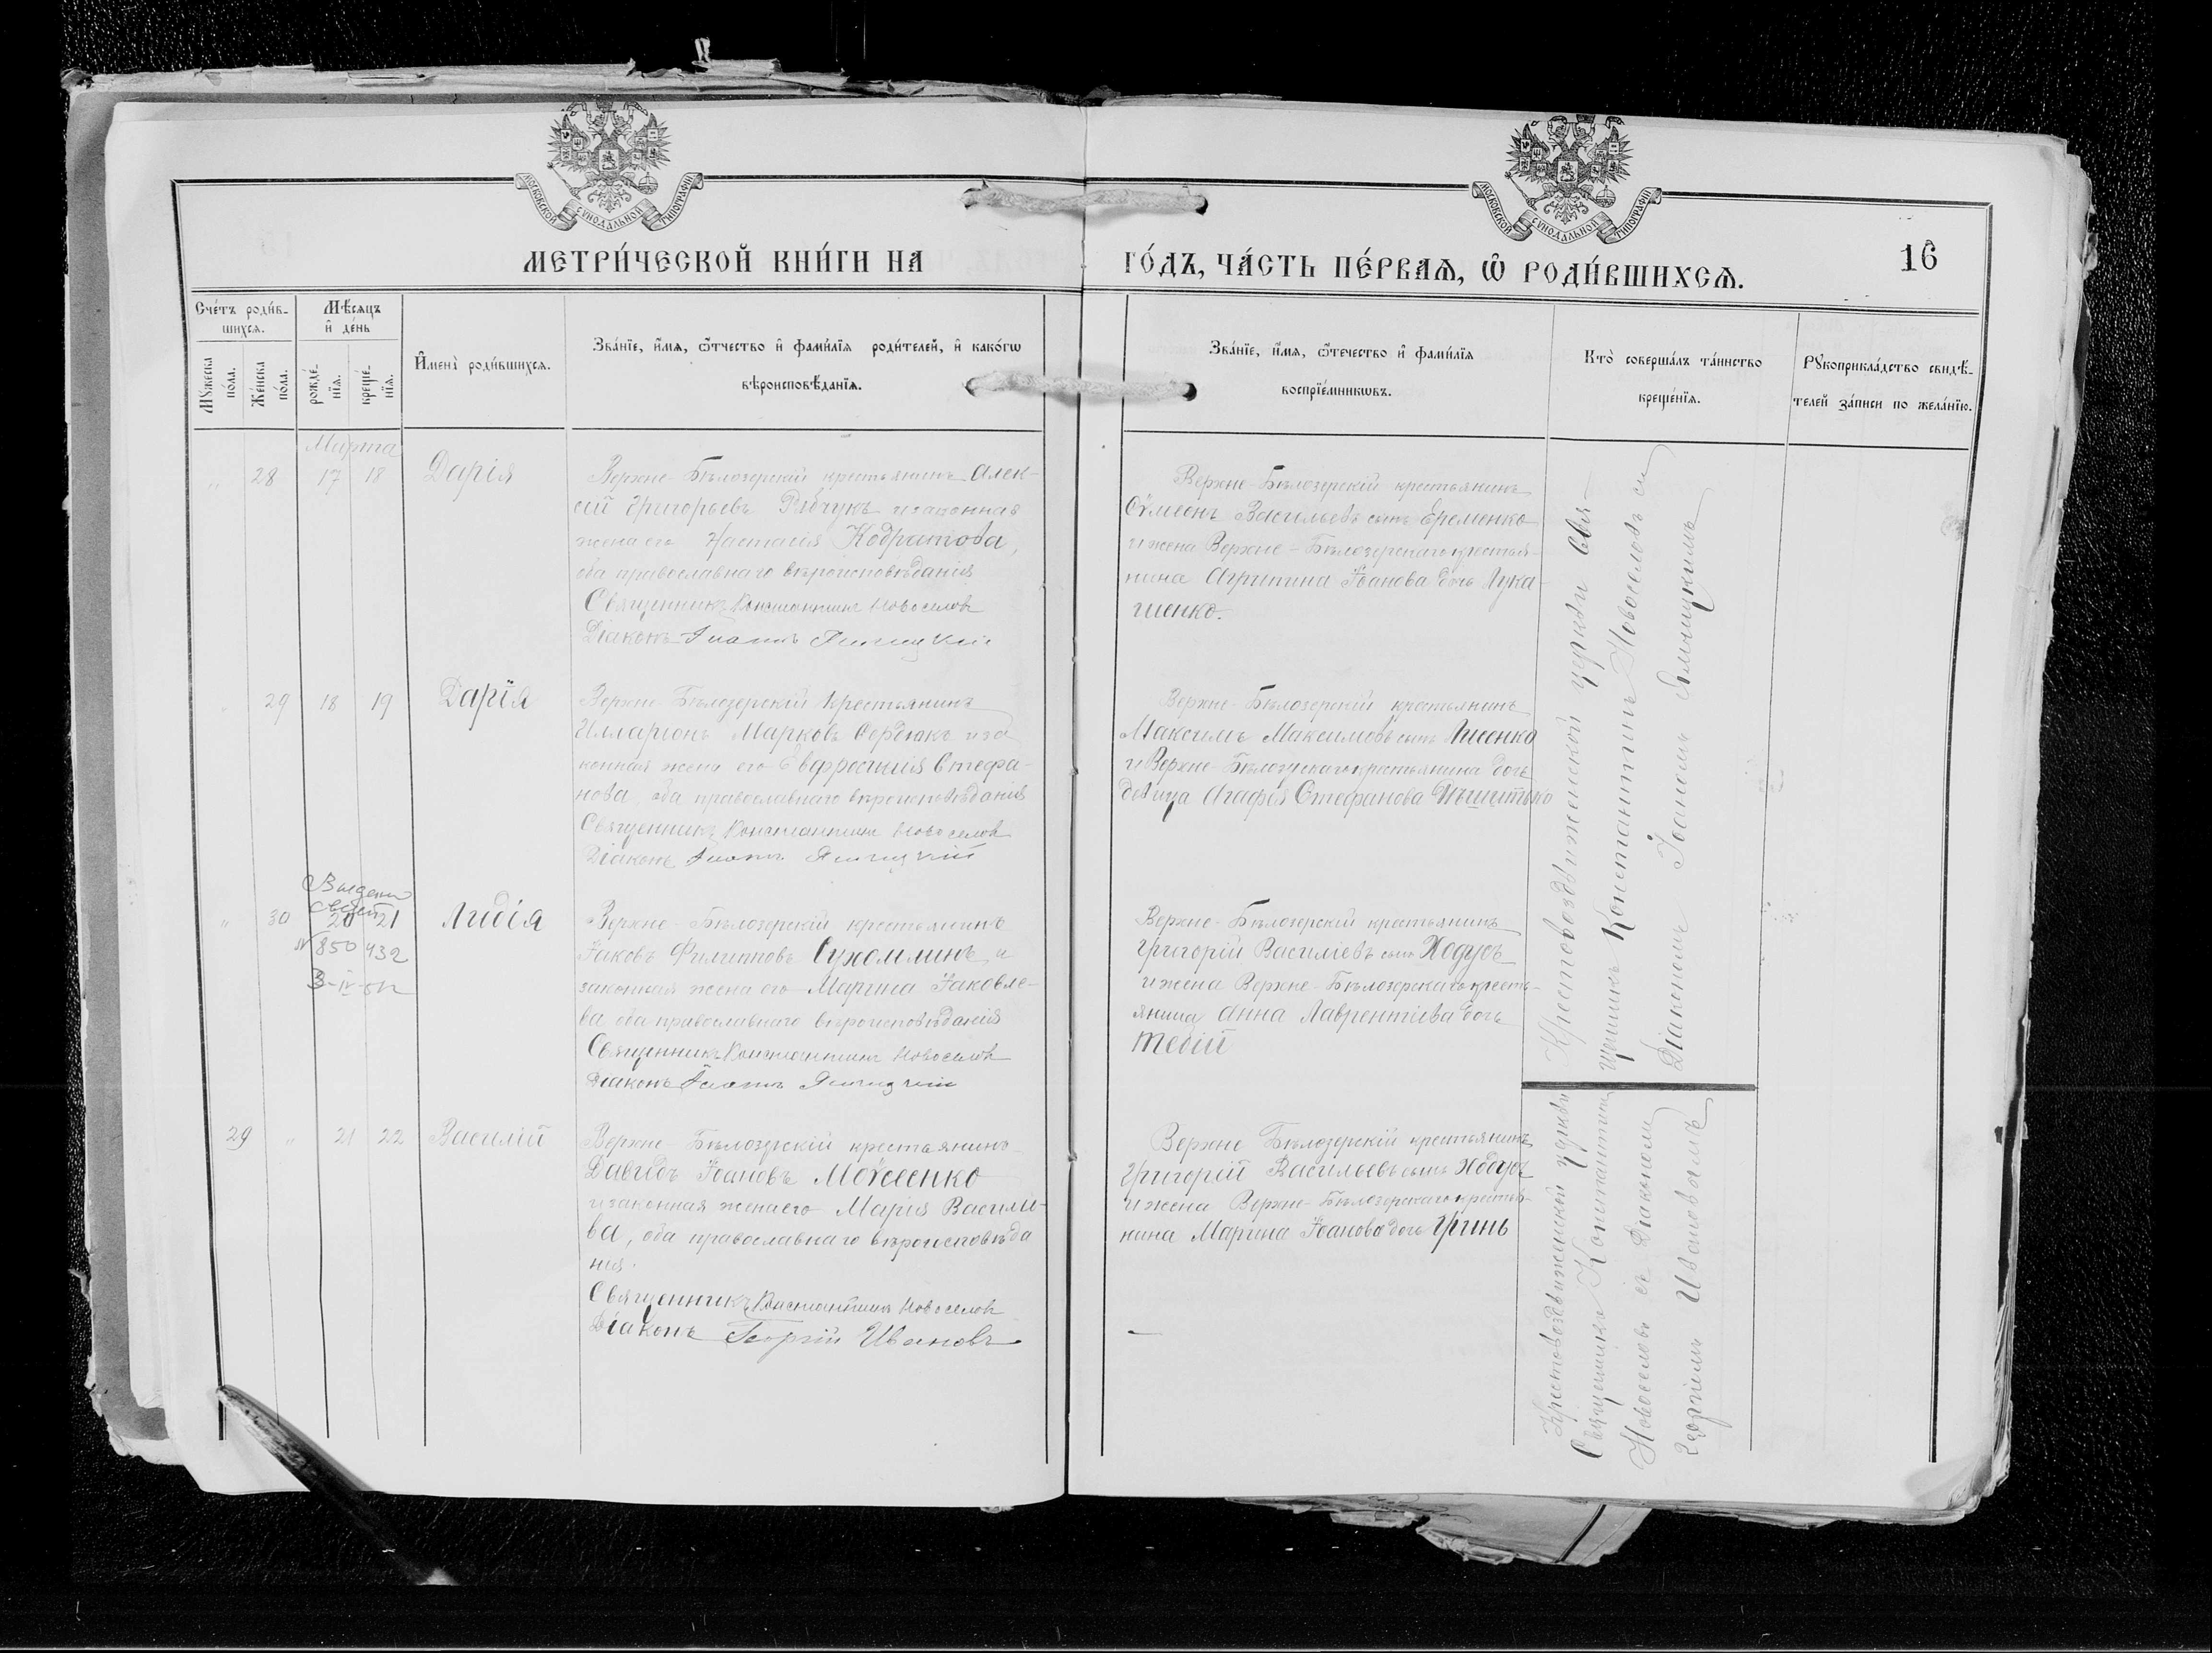 МОСКОВСКОЙ СѴНОДАЛЬНОЙ ТИПОГРАФІИ
МОСКОВСКОЙ СѴНОДАЛЬНОЙ ТИПОГРАФІИ
МЕТРИ́ЧЕСКОЙ КНИ́ГИ НА
ГО́ДЪ, ЧА́СТЬ ПЕ́РВАѦ, Ѽ РОДИ́ВШИХСѦ.
16
Сче́тъ роди́в-
шихсѧ.
Мѣ́сѧцъ
и҆ де́нь
Мꙋжеска
по́ла.
Же́нска
по́ла.
рожде́-
нїѧ.
креще́-
нїѧ.
И҆мена̀ роди́вшихсѧ.
Зва́нїе, и҆́мѧ, ѻ҆́тчество и҆ фами́лїѧ роди́телей, и҆ како́гѡ
вѣроисповѣ́данїѧ.
Зва́нїе, и҆́мѧ, ѻ҆́течество и҆ фами́лїѧ
воспрїе́мникѡвъ.
Кто̀ соверша́лъ та́инство
креще́нїѧ.
Рꙋкоприкла́дство свидѣ́-
телей за́писи по жела́нїю.
Марта
28 17 18 Дарія
Верхне-Бѣлозерскій крестьянинъ Алек-
сій Григорьевъ Рябчукъ и законная
жена его Настасія Кодратова,
оба православнаго вѣроисповѣданія
Священникъ Константинъ Новоселовъ
Діаконъ Іоаннъ
Верхне-Бѣлозерскій крестьянинъ
Сѵмеонъ Васильевъ сынъ Еременко
и жена Верхне-Бѣлозерскаго крестья-
нина Агрипина Іванова дочь Лука-
шенко.
29 18 19 Дарія
Верхне-Бѣлозерскій крестьянинъ
Илларіонъ Марковъ Сердюкъ и за
конная жена его Евфросинія Стефа-
нова, оба православнаго вѣроисповѣданія
Священникъ Константинъ Новоселовъ
Діаконъ Іоаннъ
Верхне-Бѣлозерскій крестьянинъ
Максимъ Максимовъ сынъ Лисенко
и Верхне-Бѣлозерскаго крестьянина дочь
девица Агафія Стефанова
Выдано
30 20 21 Лидія
N 850 432
Верхне-Бѣлозерскій крестьянинъ
Іаковъ Филиповъ Сухомлинъ и
законная жена его Марина Іаковле-
ва оба православнаго вѣроисповѣданія
Священникъ Константинъ Новоселовъ
Діаконъ Іоаннъ
Верхне-Бѣлозерскій крестьянинъ
Григорій Василіевъ сынъ Ходусъ
и жена Верхне-Бѣлозерскаго кресть-
янина Анна Лаврентіева дочь
29 " 21 22 Василій
Верхне-Бѣлозерскій крестьянинъ
Давидъ Івановъ Моѵсеенко
и законная жена его Марія Василіе-
ва, оба православнаго вѣроисповѣда
нія.
Священникъ Константинъ Новоселовъ
Діаконъ Георгій Ивановъ
Верхне Бѣлозерскій крестьянинъ
Григорій Васильевъ сынъ Ходусъ
и жена Верхне-Бѣлозерскаго крестья-
нина Марина Іванова дочь Гринь
Крестовоздвиженской церкви Свя-
щенникъ Константинъ Новоселовъ съ
Діакономъ Іоанномъ
Крестовоздвиженской церкви
Священникъ Константинъ
Новоселовъ съ Діакономъ
Георгіемъ Ивановымъ